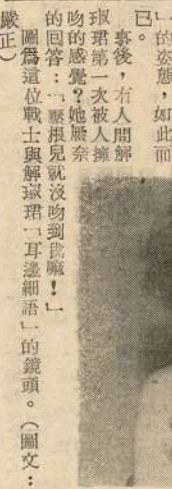 」的姿態，如此而
已。
事後，有人問解
琡珺第一次被人擁
吻的感覺？她無奈
的回答：「壓根兒就沒吻到我嘛！」
圖爲這位戰士與解琡珺「耳邊細語」的鏡頭。（圖文：
嚴正）